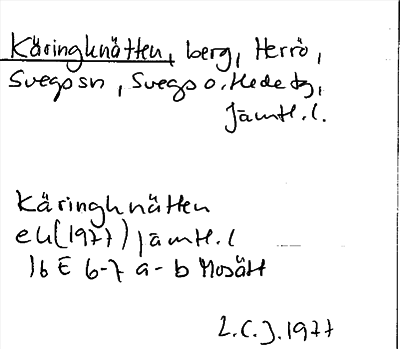 Käringknätten, berg, Herrö,
Svegs sn, Svegs o. Hede tg,
Jämtl. l.
Käringknätten
ek (1977) Jämtl. l
16 E 6-7 a-b Mosätt
L.C.J. 1977